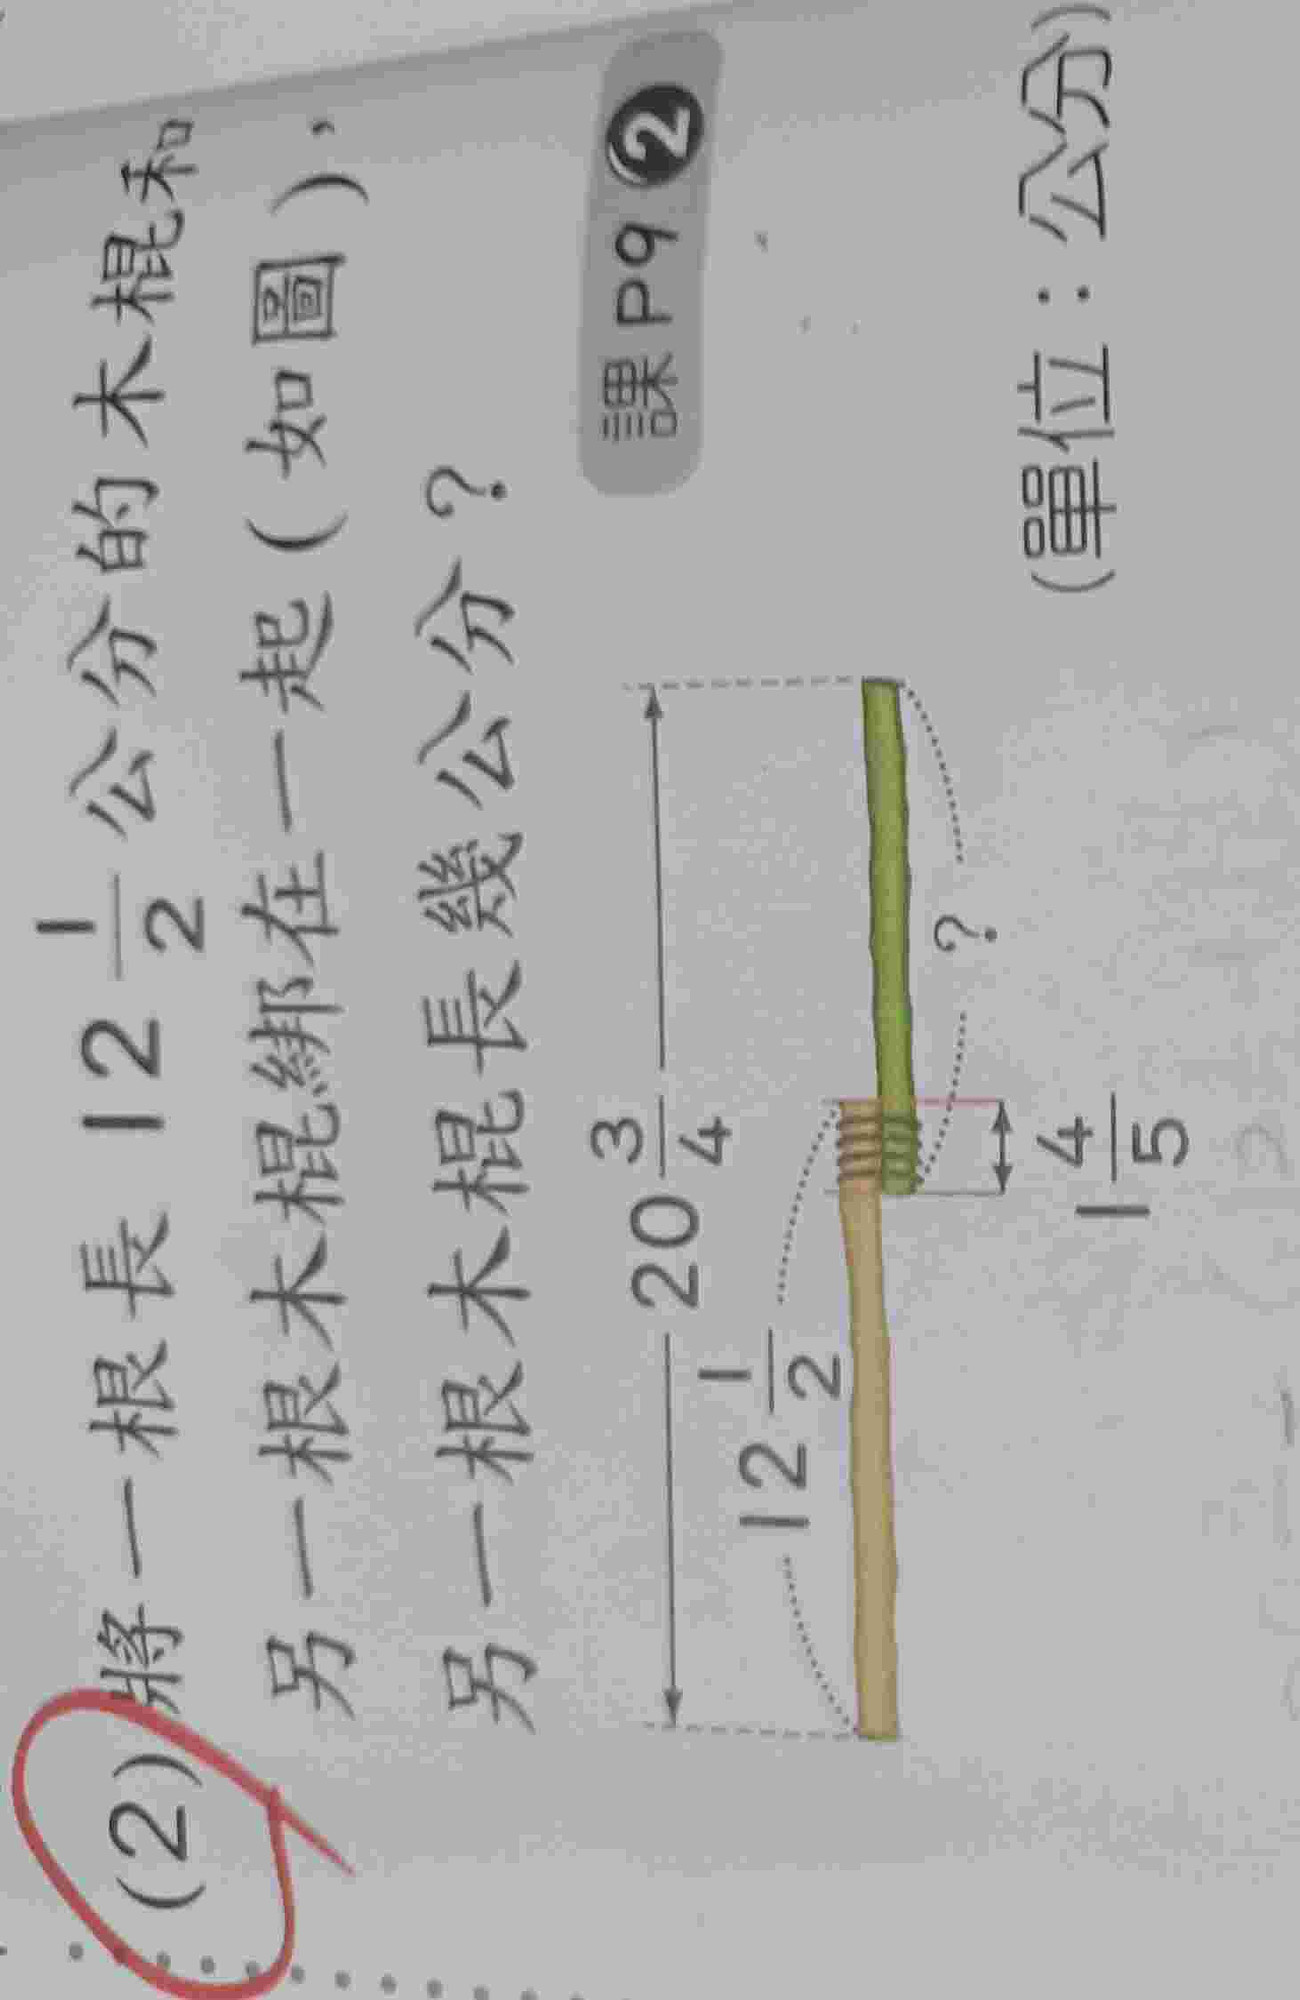 (2) 將一根長 12 1/2 公分的木棍和
另一根木棍綁在一起(如圖),
另一根木棍長幾公分?
課P9 2
20 3/4
12 1/2
?
1 4/5
(單位:公分)